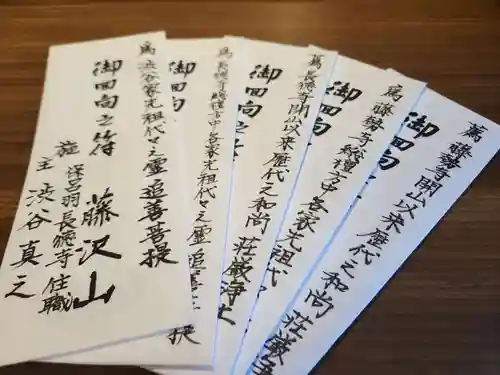 為 渋谷家先祖代々之霊 追善菩提
御回向之符 藤沢山
施主 保呂羽 長徳寺 住職
渋谷真之
為 長徳寺総檀方中各家先祖代々之霊 追善
提
御回向
為 長徳寺開山以来歴代之和尚 荘厳浄土
御回向之符
為 藤勢寺総檀方中各家先祖代
御回向
為 藤勢寺開山以来歴代之和尚 荘厳
御回向